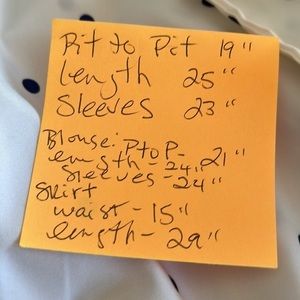 Pit to Pit 19"
Length 25"
Sleeves 23"
Blouse: P to P - 21"
length - 24"
Sleeves - 24"
Skirt
waist - 15"
length - 29"